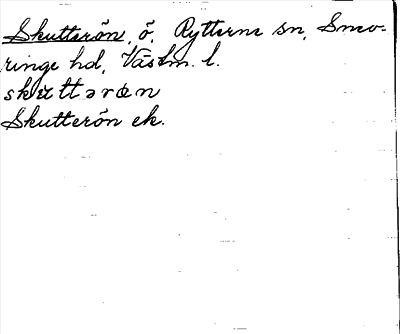 Skutterön, ö. Rytterne sn, Snev-
ringe hd, Västm. l.
skuttərøn
Skutterön ek.